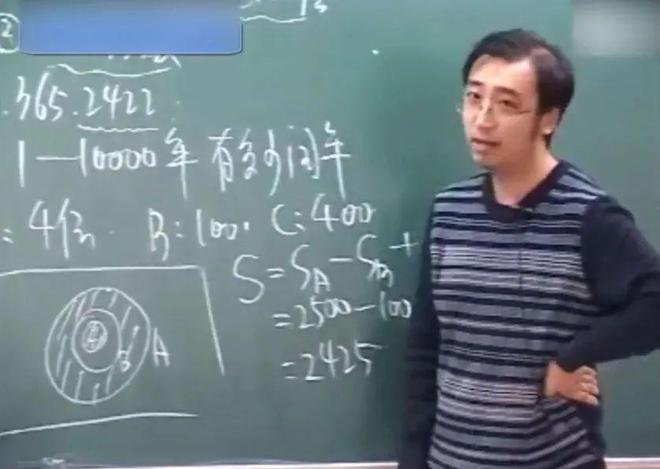 ②
365.2422
1—10000年 有多少闰年
=4倍. B=100. C=400
S=S_A-S_B+
=2500-100
=2425
B A